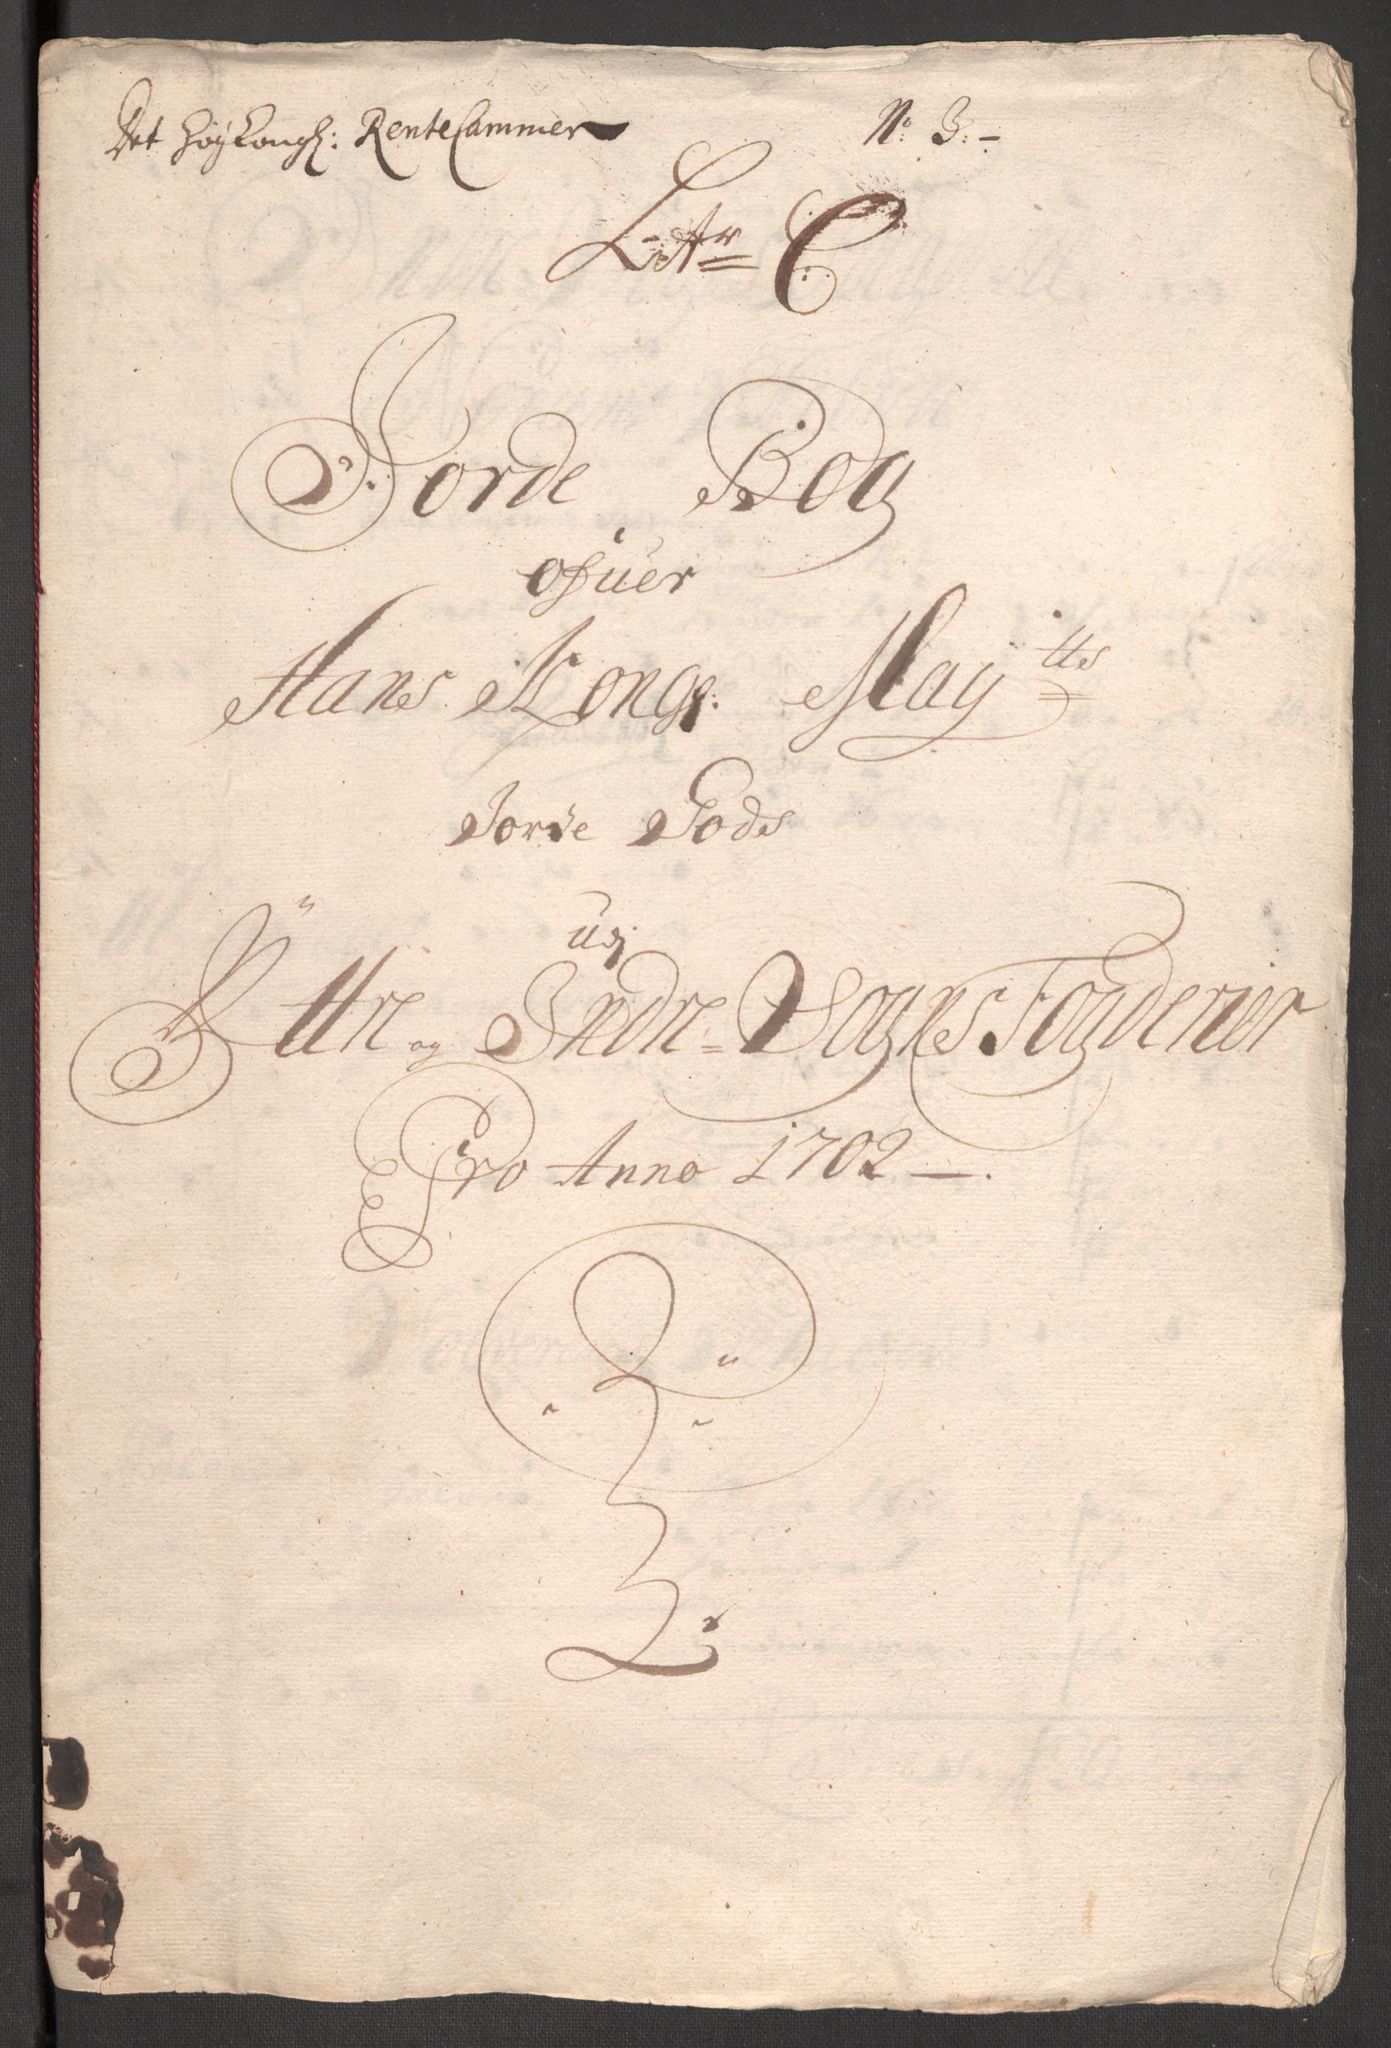 Det Høy Kongl: Rente Cammer
No 3:-
Litr C
Jorde Bog
ofuer
Hans Kongl: Maytts
Jorde Gods
udj
Ÿttre og Indre = Sogns Fogderier
Pro Anno 1702 —.